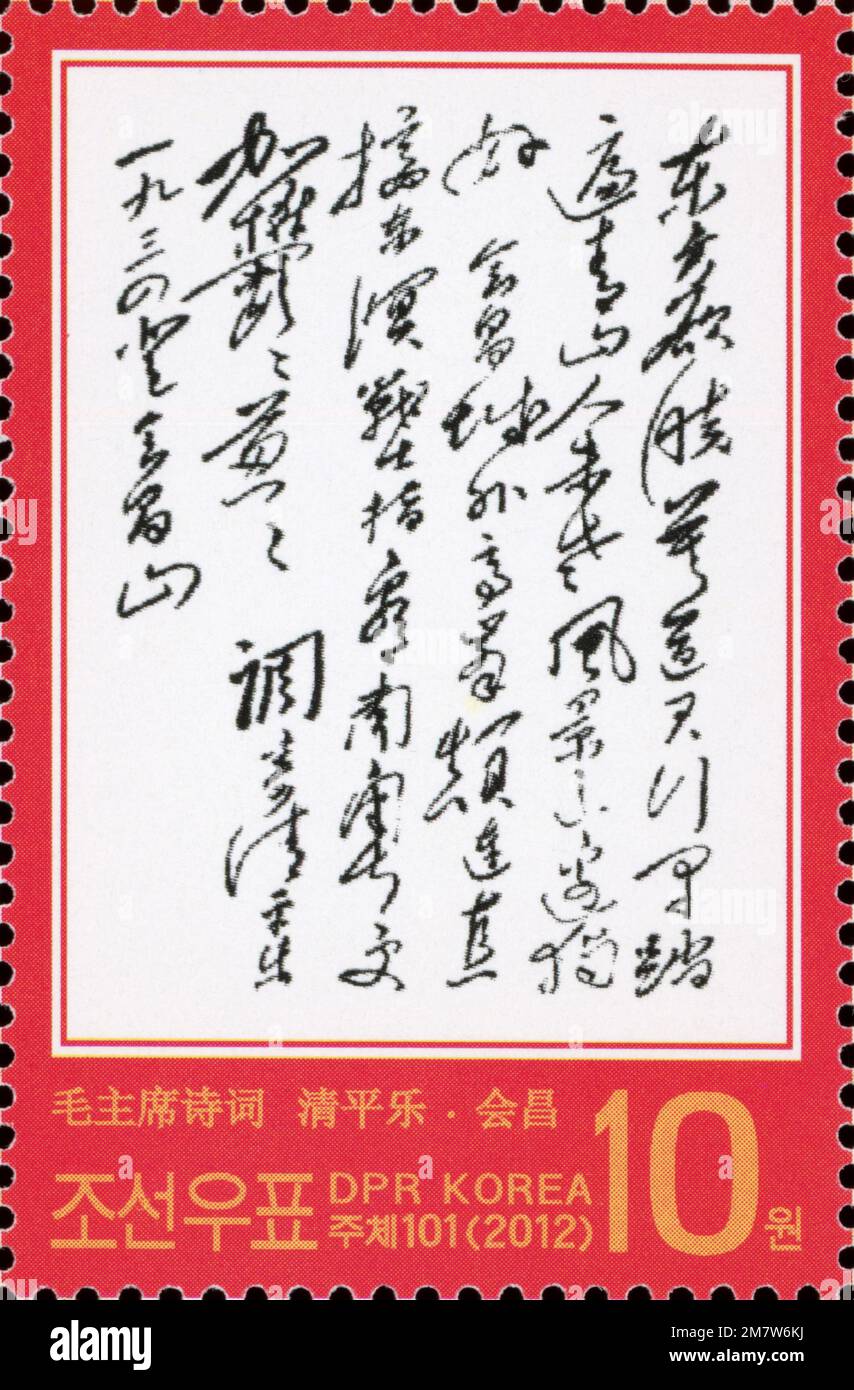 东方欲晓莫道君行早踏
遍青山人未老风景这边独
好 会昌城外高峯颠连直
接东溟战士指看南粤更
加鬱〻葱〻 調寄清平乐
一九三四登会昌山
毛主席诗词 清平乐·会昌
조선우표
DPR KOREA
주체101(2012)
10원
alamy
Image ID: 2M7W6KJ
www.alamy.com